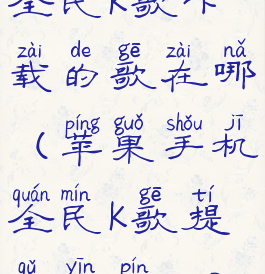 全民K歌下
zài de gē zài nǎ
载的歌在哪
píng guǒ shǒu jī
(苹果手机
quán mín gē tí
全民K歌提
qǔ yīn pín